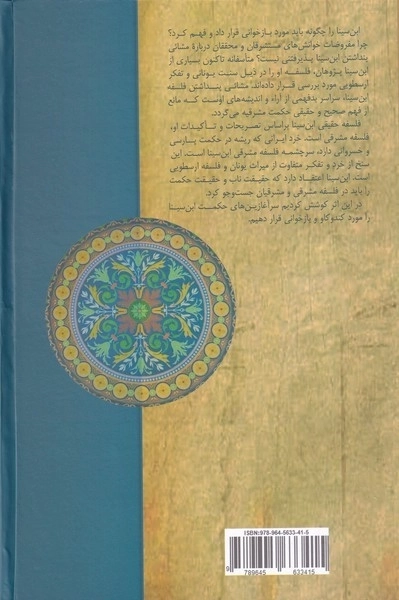 ابن‌سینا را چگونه باید مورد بازخوانی قرار داد و فهم کرد؟
چرا مفروضات خوانش‌های مستشرقان و محققان دربارهٔ مشائی
پنداشتن ابن‌سینا پذیرفتنی نیست؟ متأسفانه تاکنون بسیاری از
ابن‌سینا پژوهان، فلسفه او را در ذیل سنت یونانی و تفکر
ارسطویی مورد بررسی قرار داده‌اند. مشائی پنداشتن فلسفه
ابن‌سینا، سراسر بدفهمی از آراء و اندیشه‌های اوست که مانع
از فهم صحیح و حقیقی حکمت مشرقیه می‌گردد.
فلسفه حقیقی ابن‌سینا براساس تصریحات و تأکیدات او،
فلسفه مشرقی است. خرد ایرانی که ریشه در حکمت پارسی
و خسروانی دارد، سرچشمه فلسفه مشرقی ابن‌سینا است. این
سنخ از خرد و تفکر متفاوت از میراث یونان و فلسفه ارسطویی
است. ابن‌سینا اعتقاد دارد که حقیقت ناب و حقیقت حکمت
را باید در فلسفه مشرقی و مشرقیان جست‌وجو کرد.
در این اثر کوشش کردیم سرآغازین‌های حکمت ابن‌سینا
را مورد کندوکاو و بازخوانی قرار دهیم.
ISBN: 978-964-5633-41-5
9 789645 633415